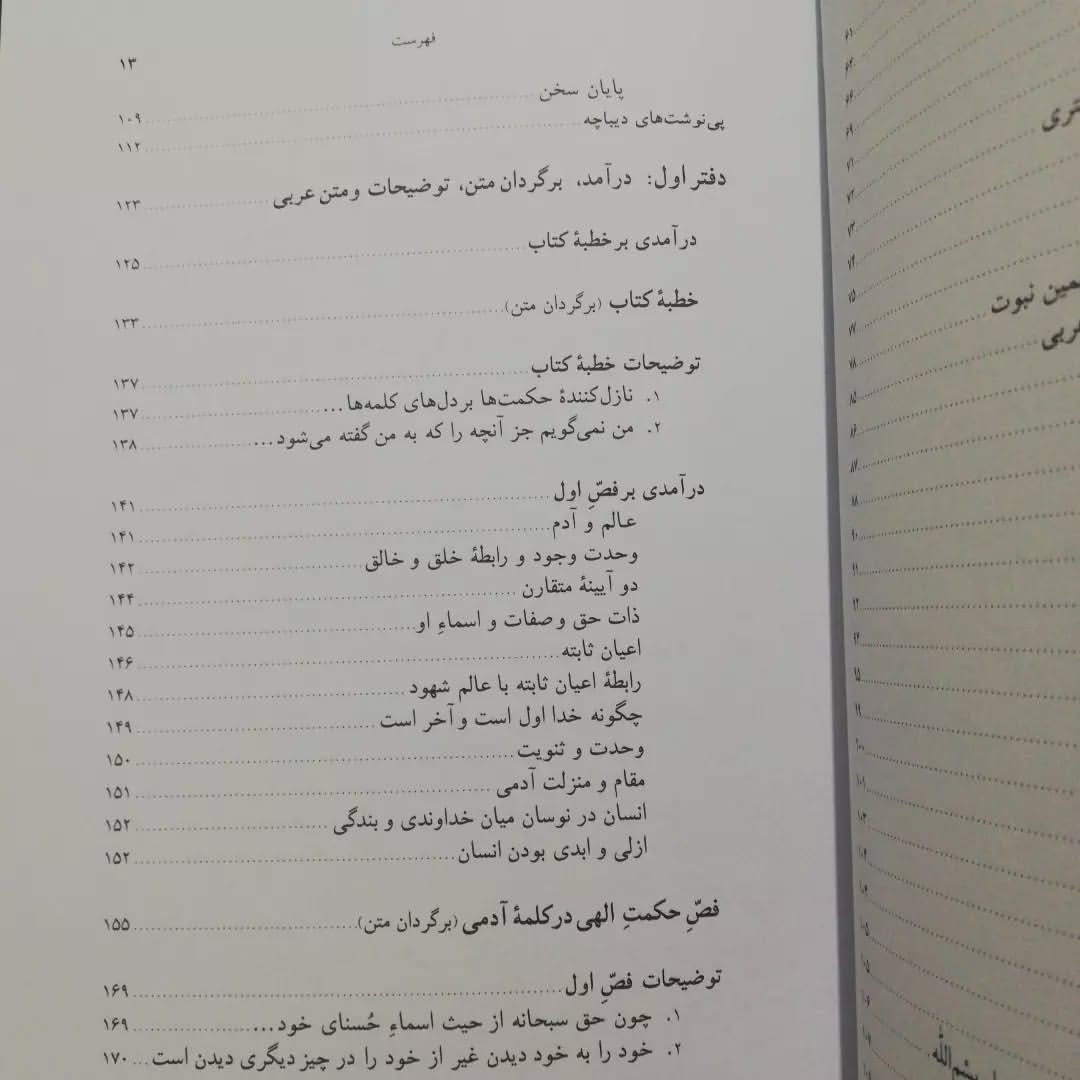 فهرست
۱۳
پایان سخن ... ۱۰۹
پی‌نوشت‌های دیباچه ... ۱۱۲
دفتر اول: درآمد، برگردان متن، توضیحات و متن عربی ... ۱۲۳
درآمدی بر خطبهٔ کتاب ... ۱۲۵
خطبهٔ کتاب (برگردان متن) ... ۱۳۳
توضیحات خطبهٔ کتاب ... ۱۳۷
۱. نازل‌کنندهٔ حکمت‌ها بر دل‌های کلمه‌ها... ۱۳۷
۲. من نمی‌گویم جز آنچه را که به من گفته می‌شود... ۱۳۸
درآمدی بر فصّ اول ... ۱۴۱
عالم و آدم ... ۱۴۱
وحدت وجود و رابطهٔ خلق و خالق ... ۱۴۲
دو آیینهٔ متقارن ... ۱۴۴
ذات حق و صفات و اسماءِ او ... ۱۴۵
اعیان ثابته ... ۱۴۶
رابطهٔ اعیان ثابته با عالم شهود ... ۱۴۸
چگونه خدا اول است و آخر است ... ۱۴۹
وحدت و ثنویت ... ۱۵۰
مقام و منزلت آدمی ... ۱۵۱
انسان در نوسان میان خداوندی و بندگی ... ۱۵۲
ازلی و ابدی بودن انسان ... ۱۵۲
فصّ حکمتِ الهی در کلمهٔ آدمی (برگردان متن) ... ۱۵۵
توضیحات فصّ اول ... ۱۶۹
۱. چون حق سبحانه از حیث اسماءِ حُسنای خود... ۱۶۹
۲. خود را به خود دیدن غیر از خود را در چیز دیگری دیدن است ... ۱۷۰
تری
نبوت
بسم‌الله
۶۹
۷۱
۷۲
۷۳
۷۴
۷۵
۷۷
۷۸
۸۵
۸۶
۸۷
۸۸
۹۰
۹۱
۹۲
۹۴
۹۵
۹۹
۱۰۰
۱۰۱
۱۰۳
۱۰۴
۱۰۴
۱۰۵
۱۰۵
۱۰۶
۱۰۷
۱۰۸